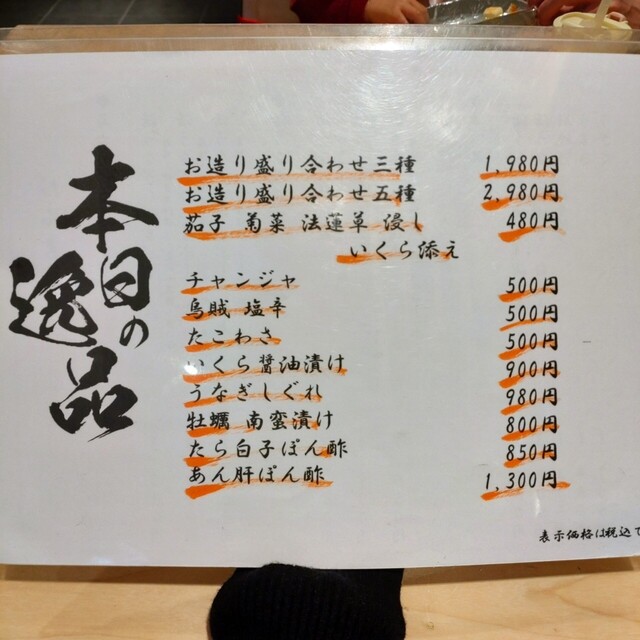 本日の
逸品
お造り盛り合わせ三種 1,980円
お造り盛り合わせ五種 2,980円
茄子 菊菜 法蓮草 浸し 480円
いくら添え
チャンジャ 500円
烏賊 塩辛 500円
たこわさ 500円
いくら醤油漬け 900円
うなぎしぐれ 980円
牡蠣 南蛮漬け 800円
たら白子ぽん酢 850円
あん肝ぽん酢 1,300円
表示価格は税込で